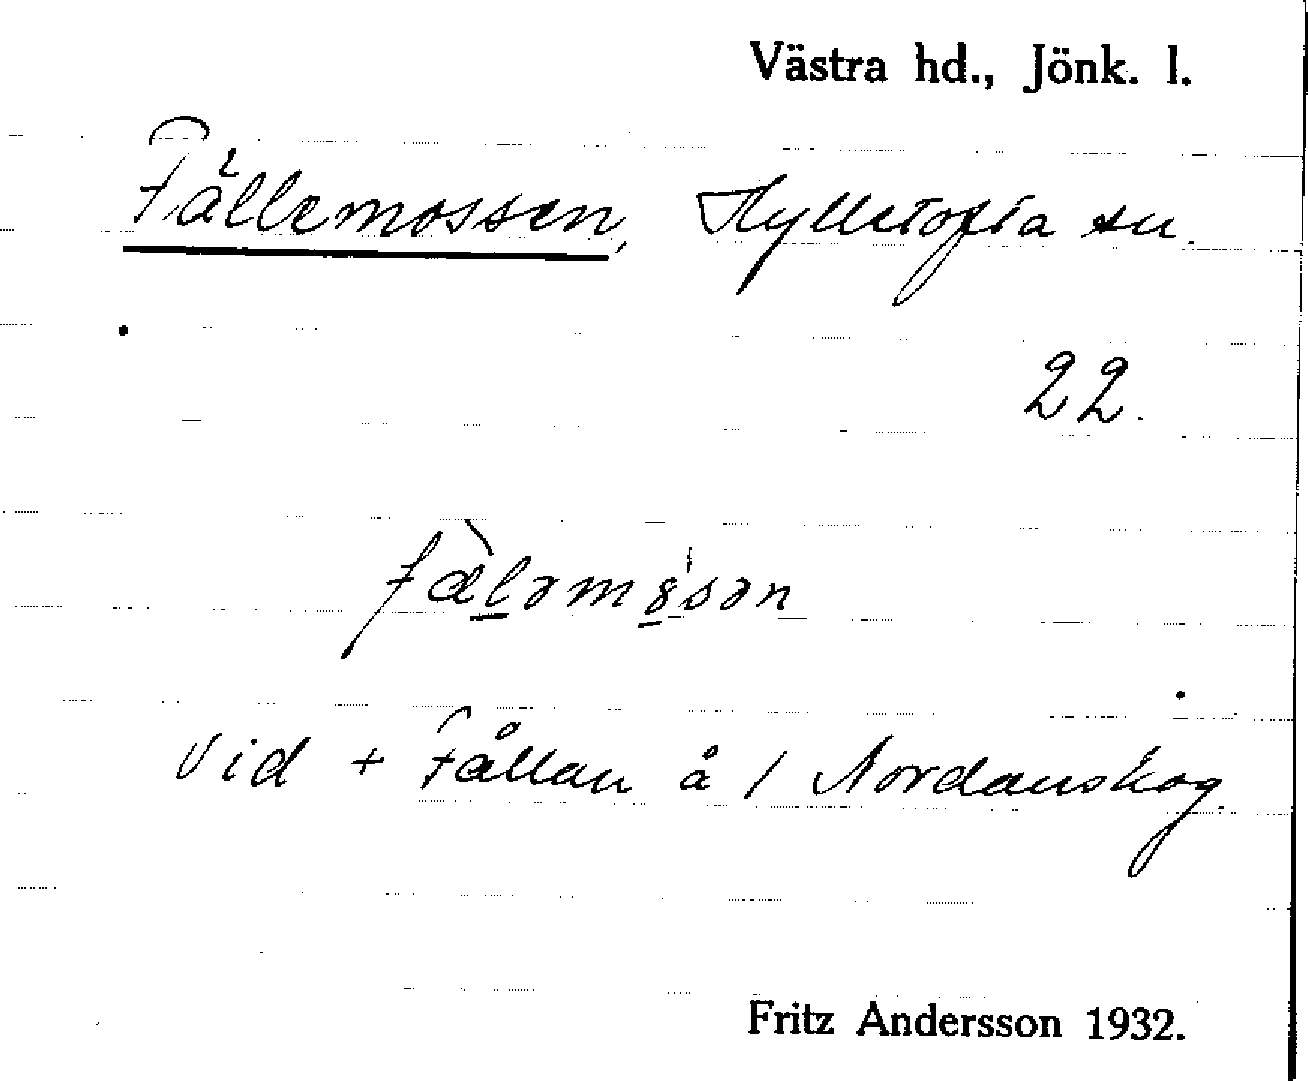 Västra hd., Jönk. l.
Fällemossen, Hylletofta sn.
22.
fæ̀ləmo̱sən
Vid + Fållan å / Nordanskog
Fritz Andersson 1932.